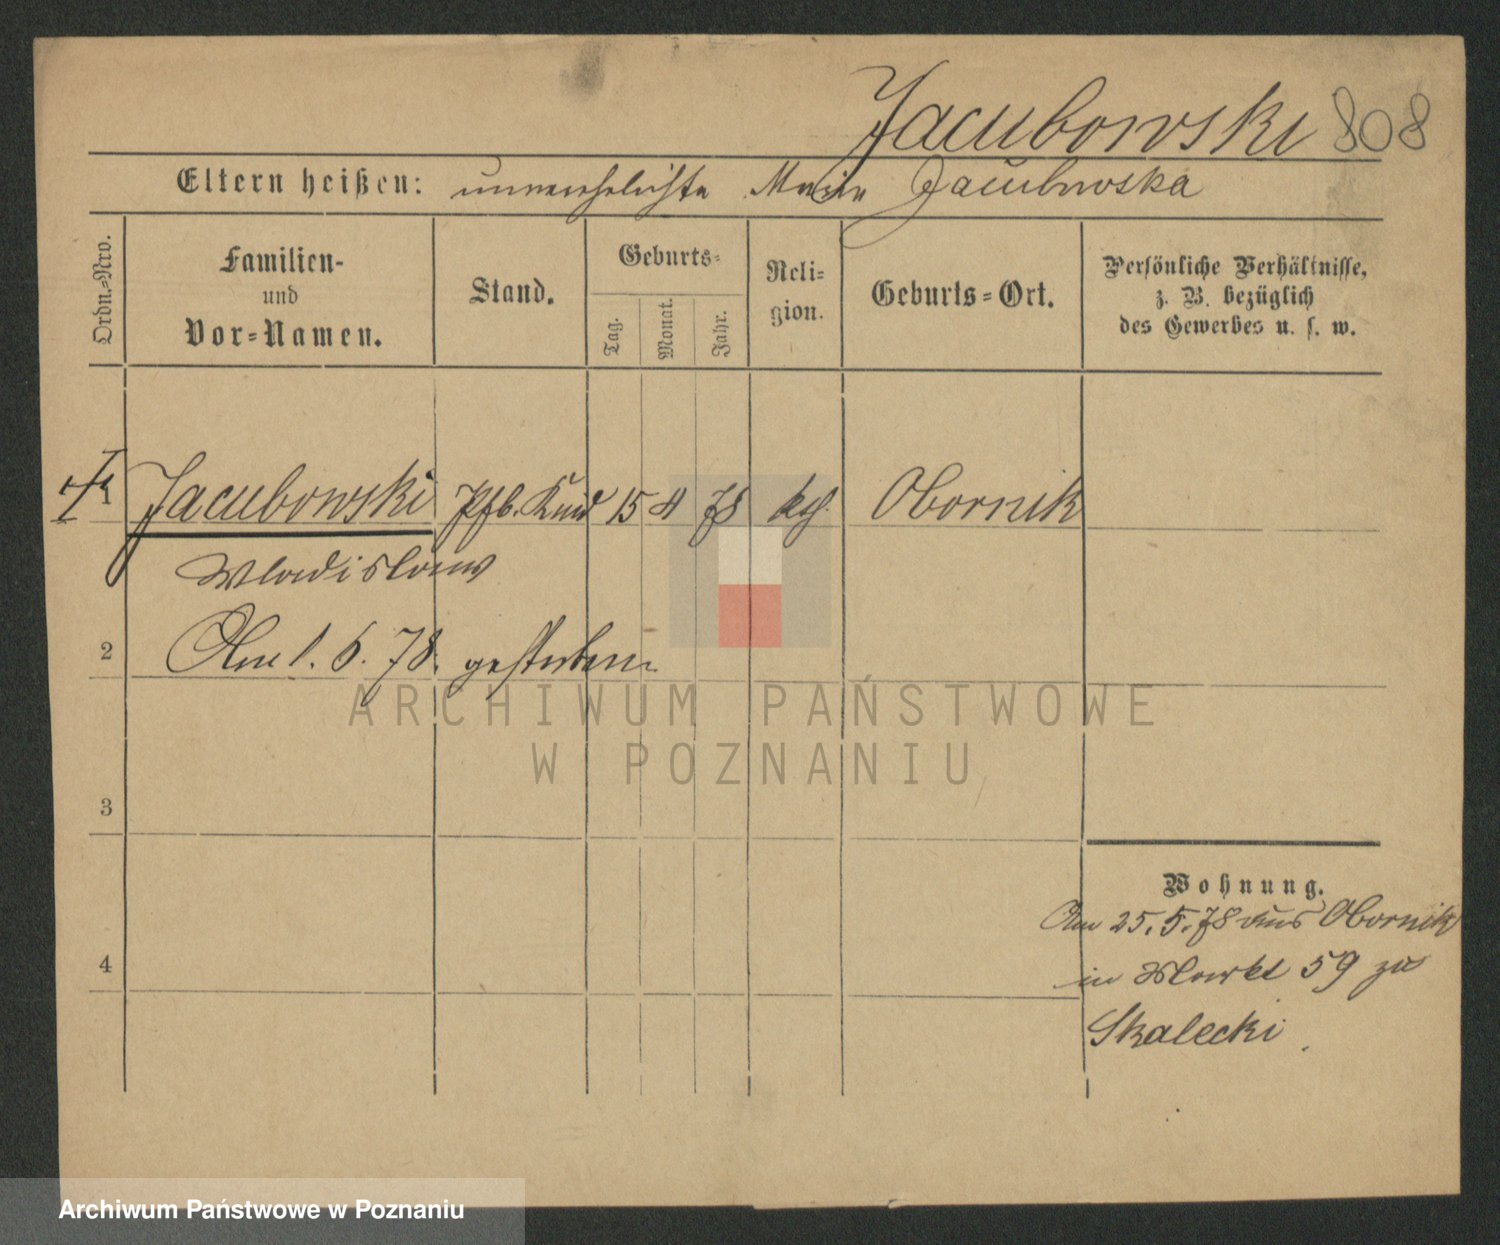 Jacubowski 808
Eltern heißen: unverehelichte Maria Jacubowska
Ordn.-Nro.
Familien-
und
Vor-Namen.
Stand.
Geburts-
Tag.
Monat.
Jahr.
Reli-
gion.
Geburts-Ort.
Persönliche Verhältnisse,
z. B. bezüglich
des Gewerbes u. s. w.
1 Jacubowski Pfl. Kind 15 4 78 kg. Obornik
Wladislaus
2 Am 1. 6. 78. gestorben
3
4
Wohnung.
Am 25. 5. 78 aus Obornik
in Markt 59 zu
Skalecki
ARCHIWUM PAŃSTWOWE
W POZNANIU
Archiwum Państwowe w Poznaniu